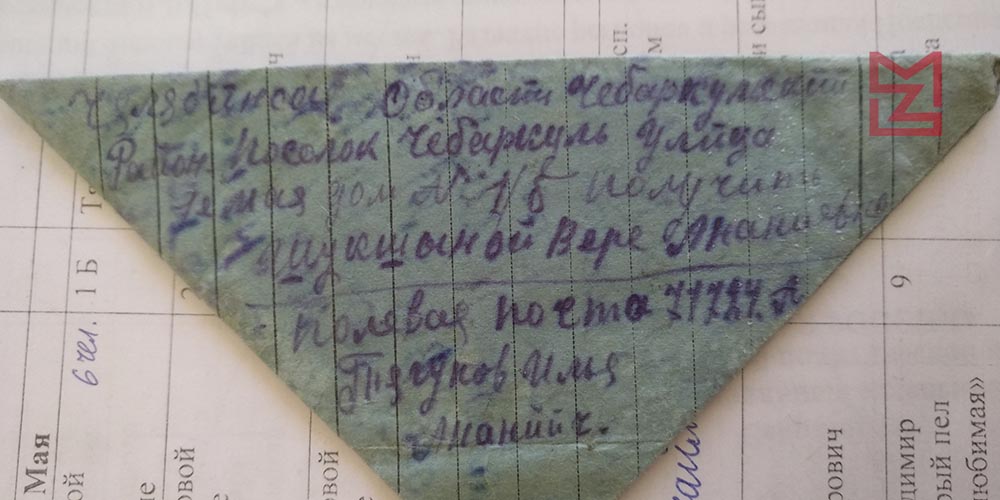 Челябинской Области Чебаркульский
Район Поселок Чебаркуль Улица
дом № 1/б Получить
Шукшыной Вере Ананиевне
Полявая почта 71727.А
Пягунов Илья
Ананийч.
Мая
6 чел.
1 Б
9
ой
не
овой
е
рович
димир
рый пел
юбимая»
сп.
м
и сы